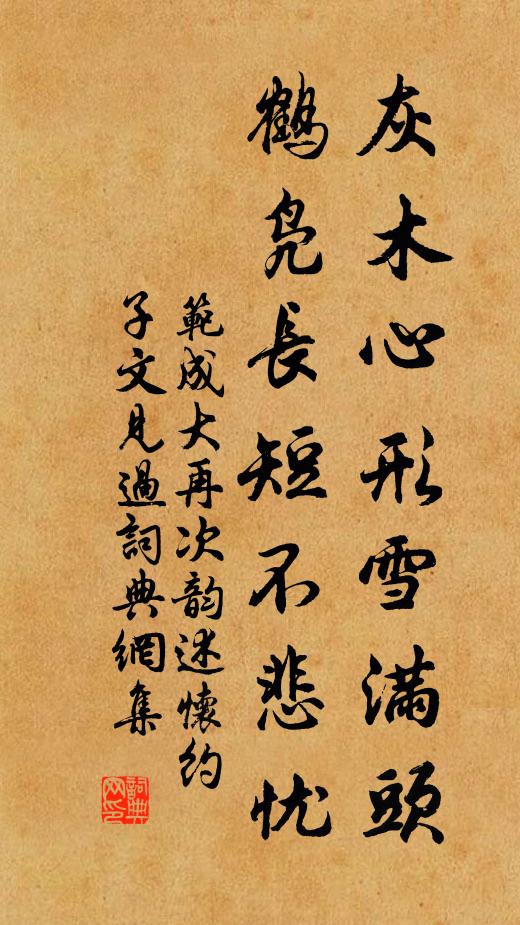 灰木心形雪满頭
鶴凫長短不悲忧
範成大再次韵述懷约
子文見過詞典網集
詞典网印